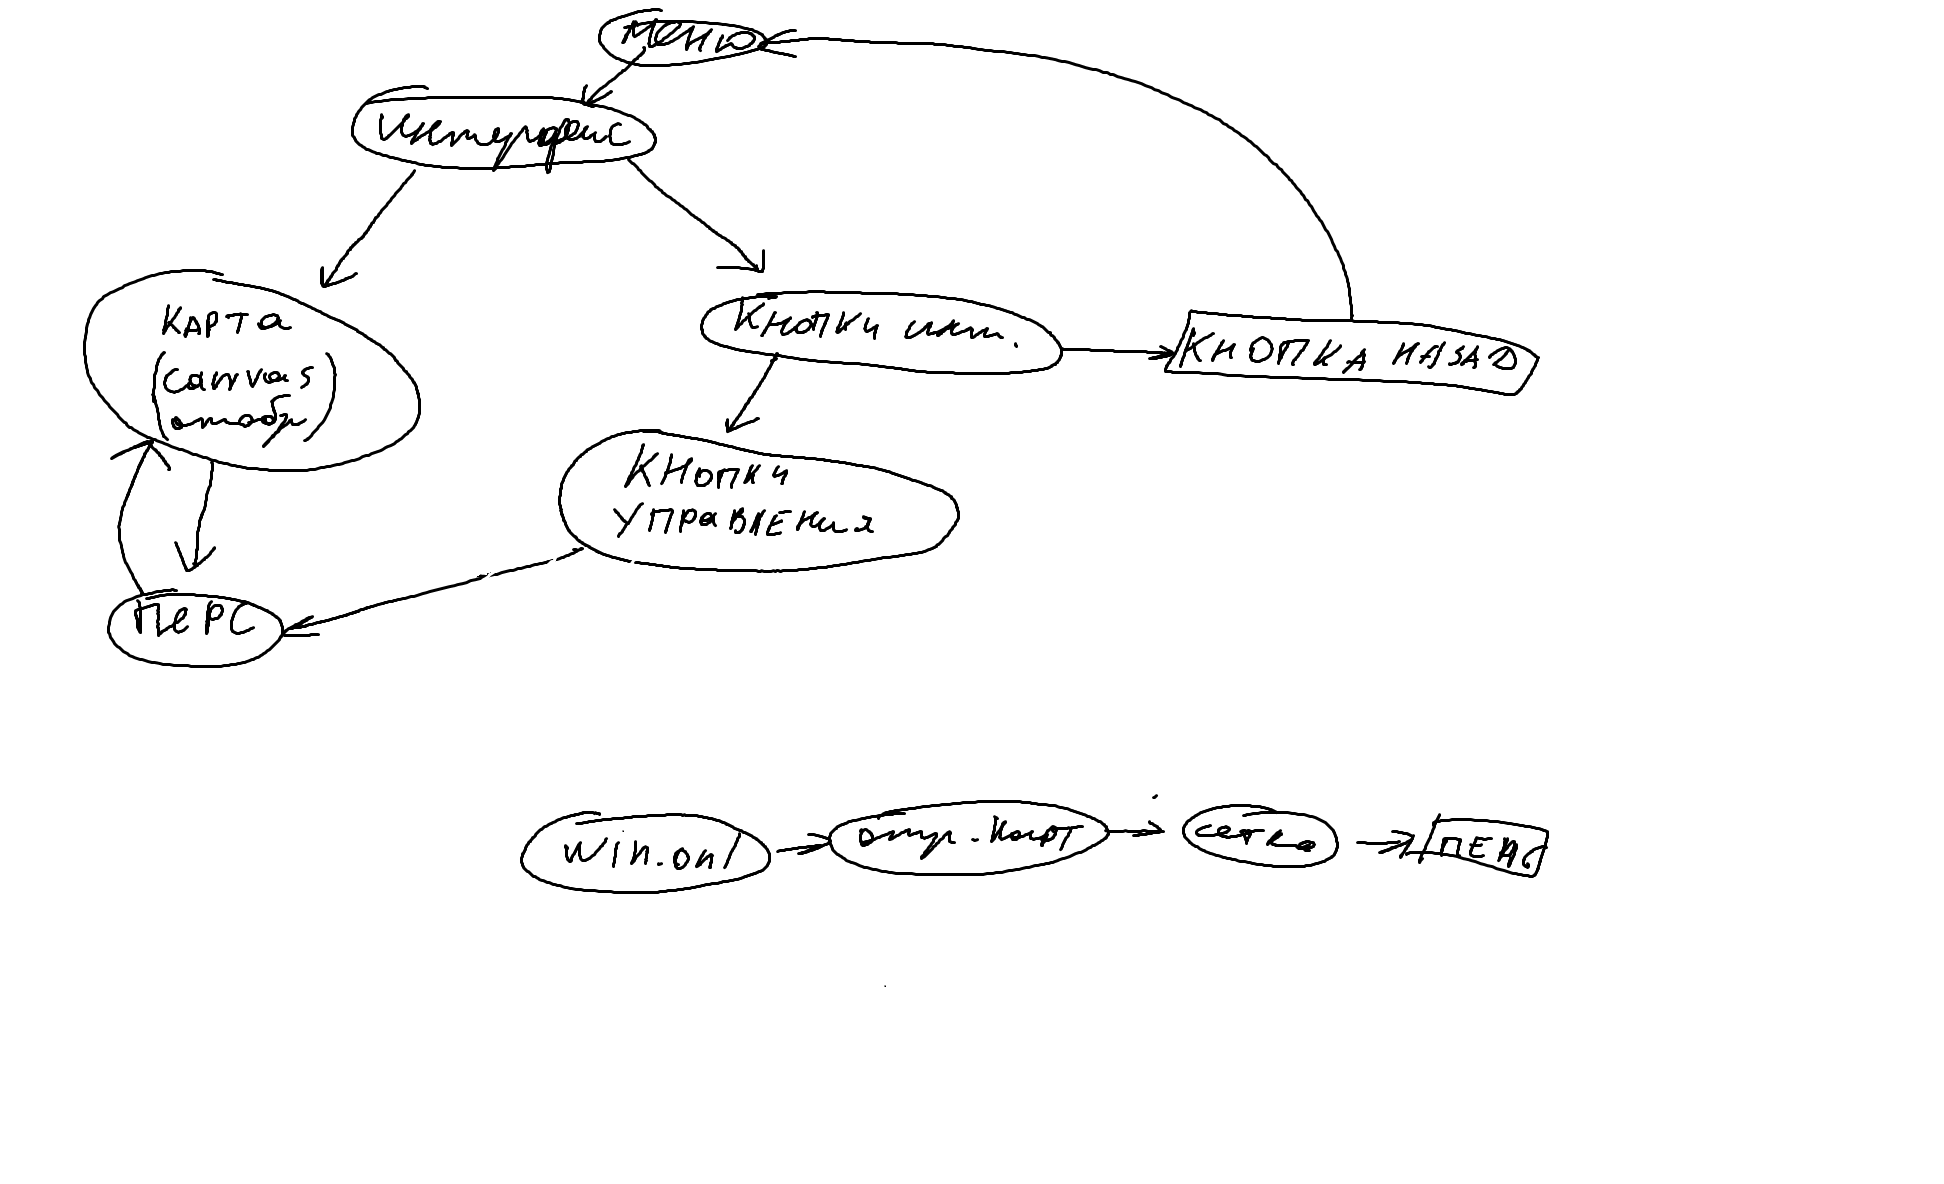 меню
интерфейс
КАРТа
(canvas
отобр)
Кнопки инт.
КНОПКА НАЗАД
Кнопки
УПРаВЛЕНия
ПеРС
win.onl
отр. Карт
сетка
ПЕРС